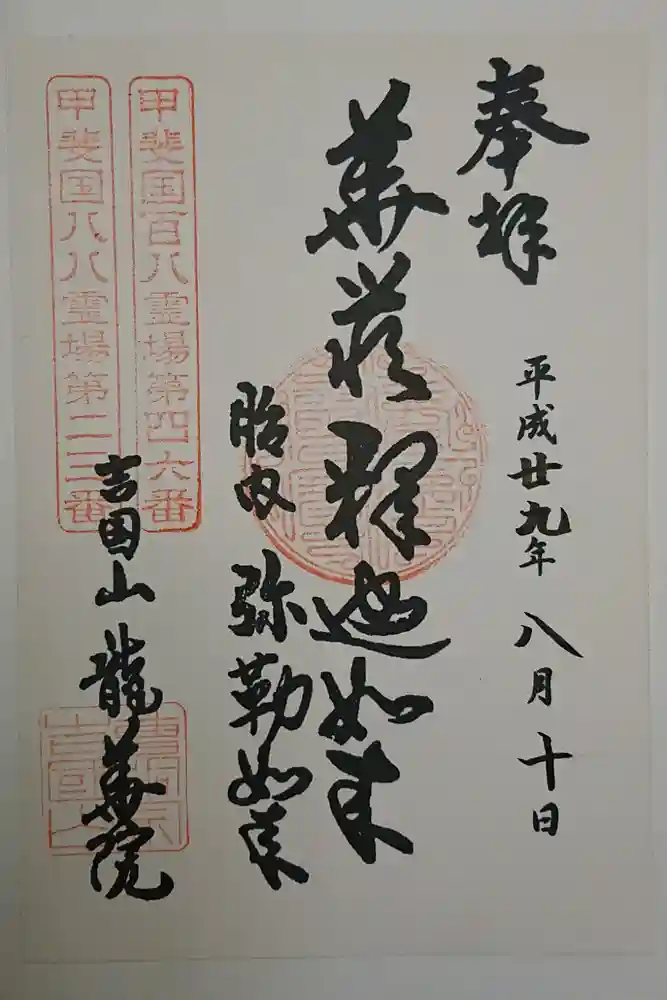 奉拝
平成廿九年 八月 十日
華蔵釋迦如来
胎内 弥勒如来
甲斐国百八霊場第四六番
甲斐国八八霊場第二三番
吉国山 龍華院